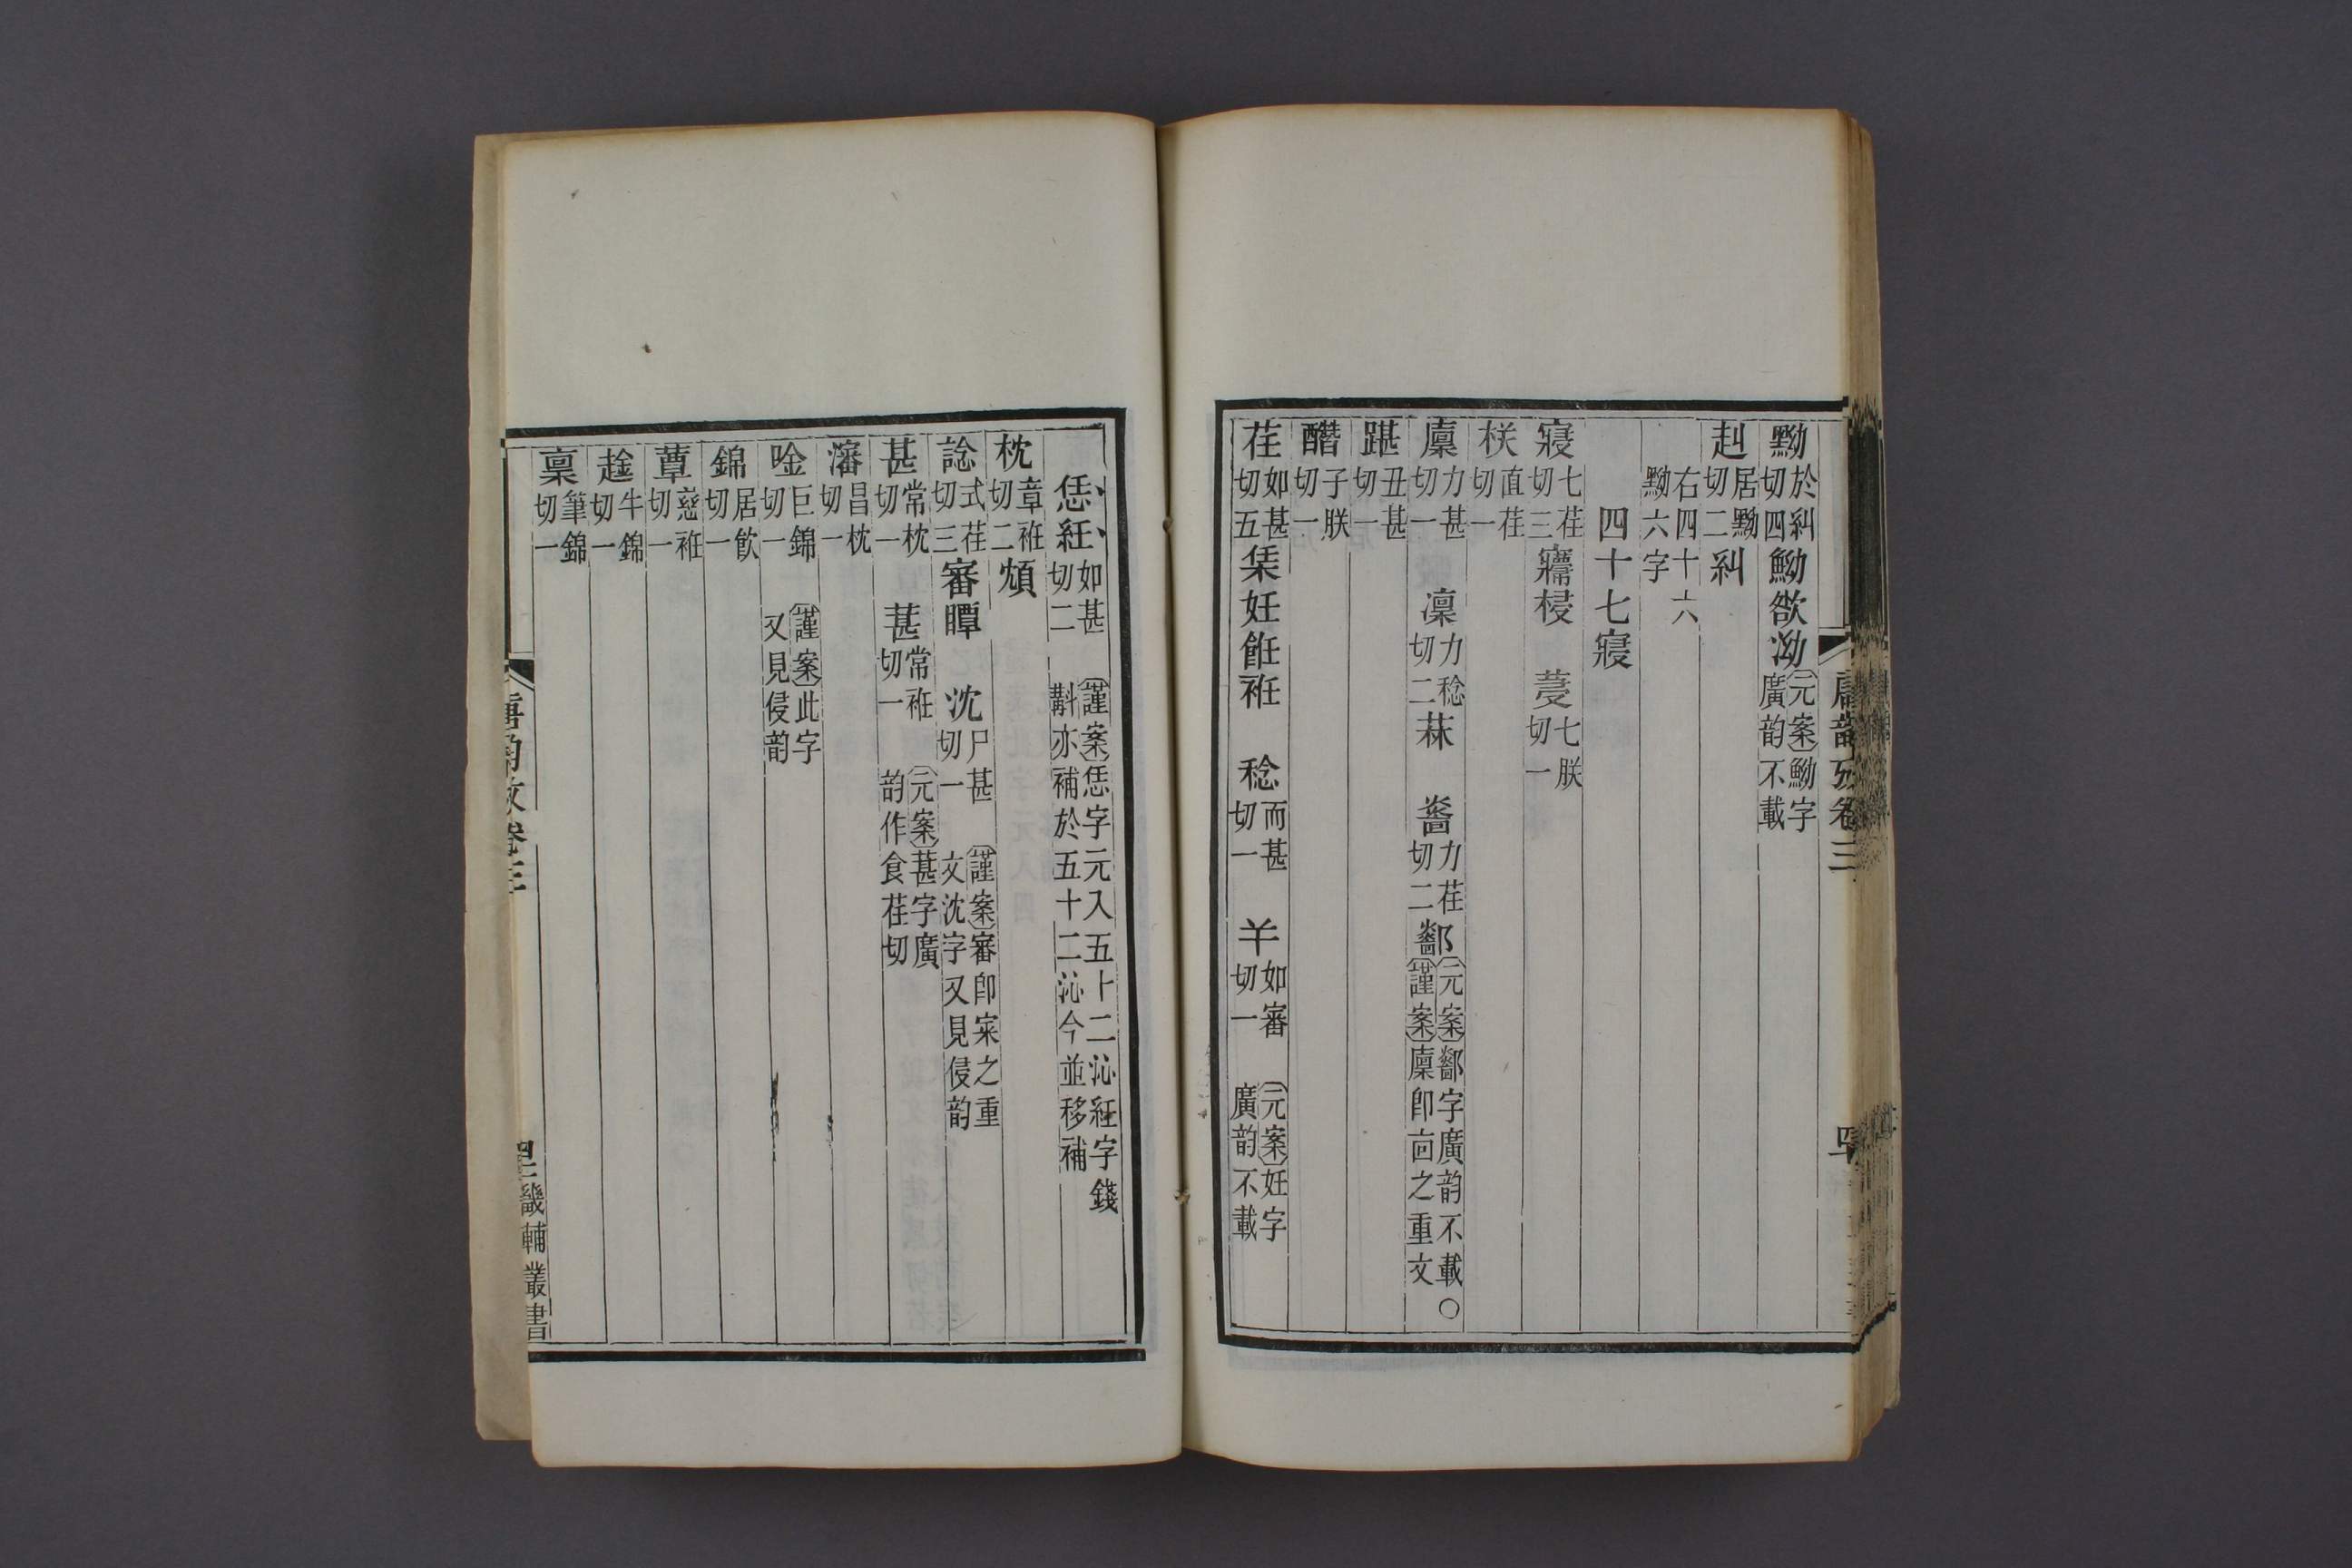 黝於糾切四鰳欲泑元案鰳字廣韵不載
赳居黝切二糾
右四十六黝六字
四十七寑
寑七荏切三㝲梫 蓡七朕切一
栚直荏切一
廩力甚切一 凜力稔切二菻 㐭力荏切二鄯元案鄯字廣韵不載○謹案廩卽㐭之重文
踸丑甚切一
醋子朕切一
荏如甚切五栠妊飪衽 稔而甚切一 𢆉如審切一 元案妊字廣韵不載
恁紝如甚切二 謹案恁字元入五十二沁紝字錢斠亦補於五十二沁今並移補
枕章衽切二䪴
諗式荏切三審瞫 沈尸甚切一 謹案審卽宷之重文沈字又見侵韵
甚常枕切一 葚常衽切一 元案葚字廣韵作食荏切
瀋昌枕切一
唫巨錦切一 謹案此字又見侵韵
錦居飮切一
蕈慈衽切一
趛牛錦切一
稟筆錦切一
唐韵攷卷三
畿輔叢書